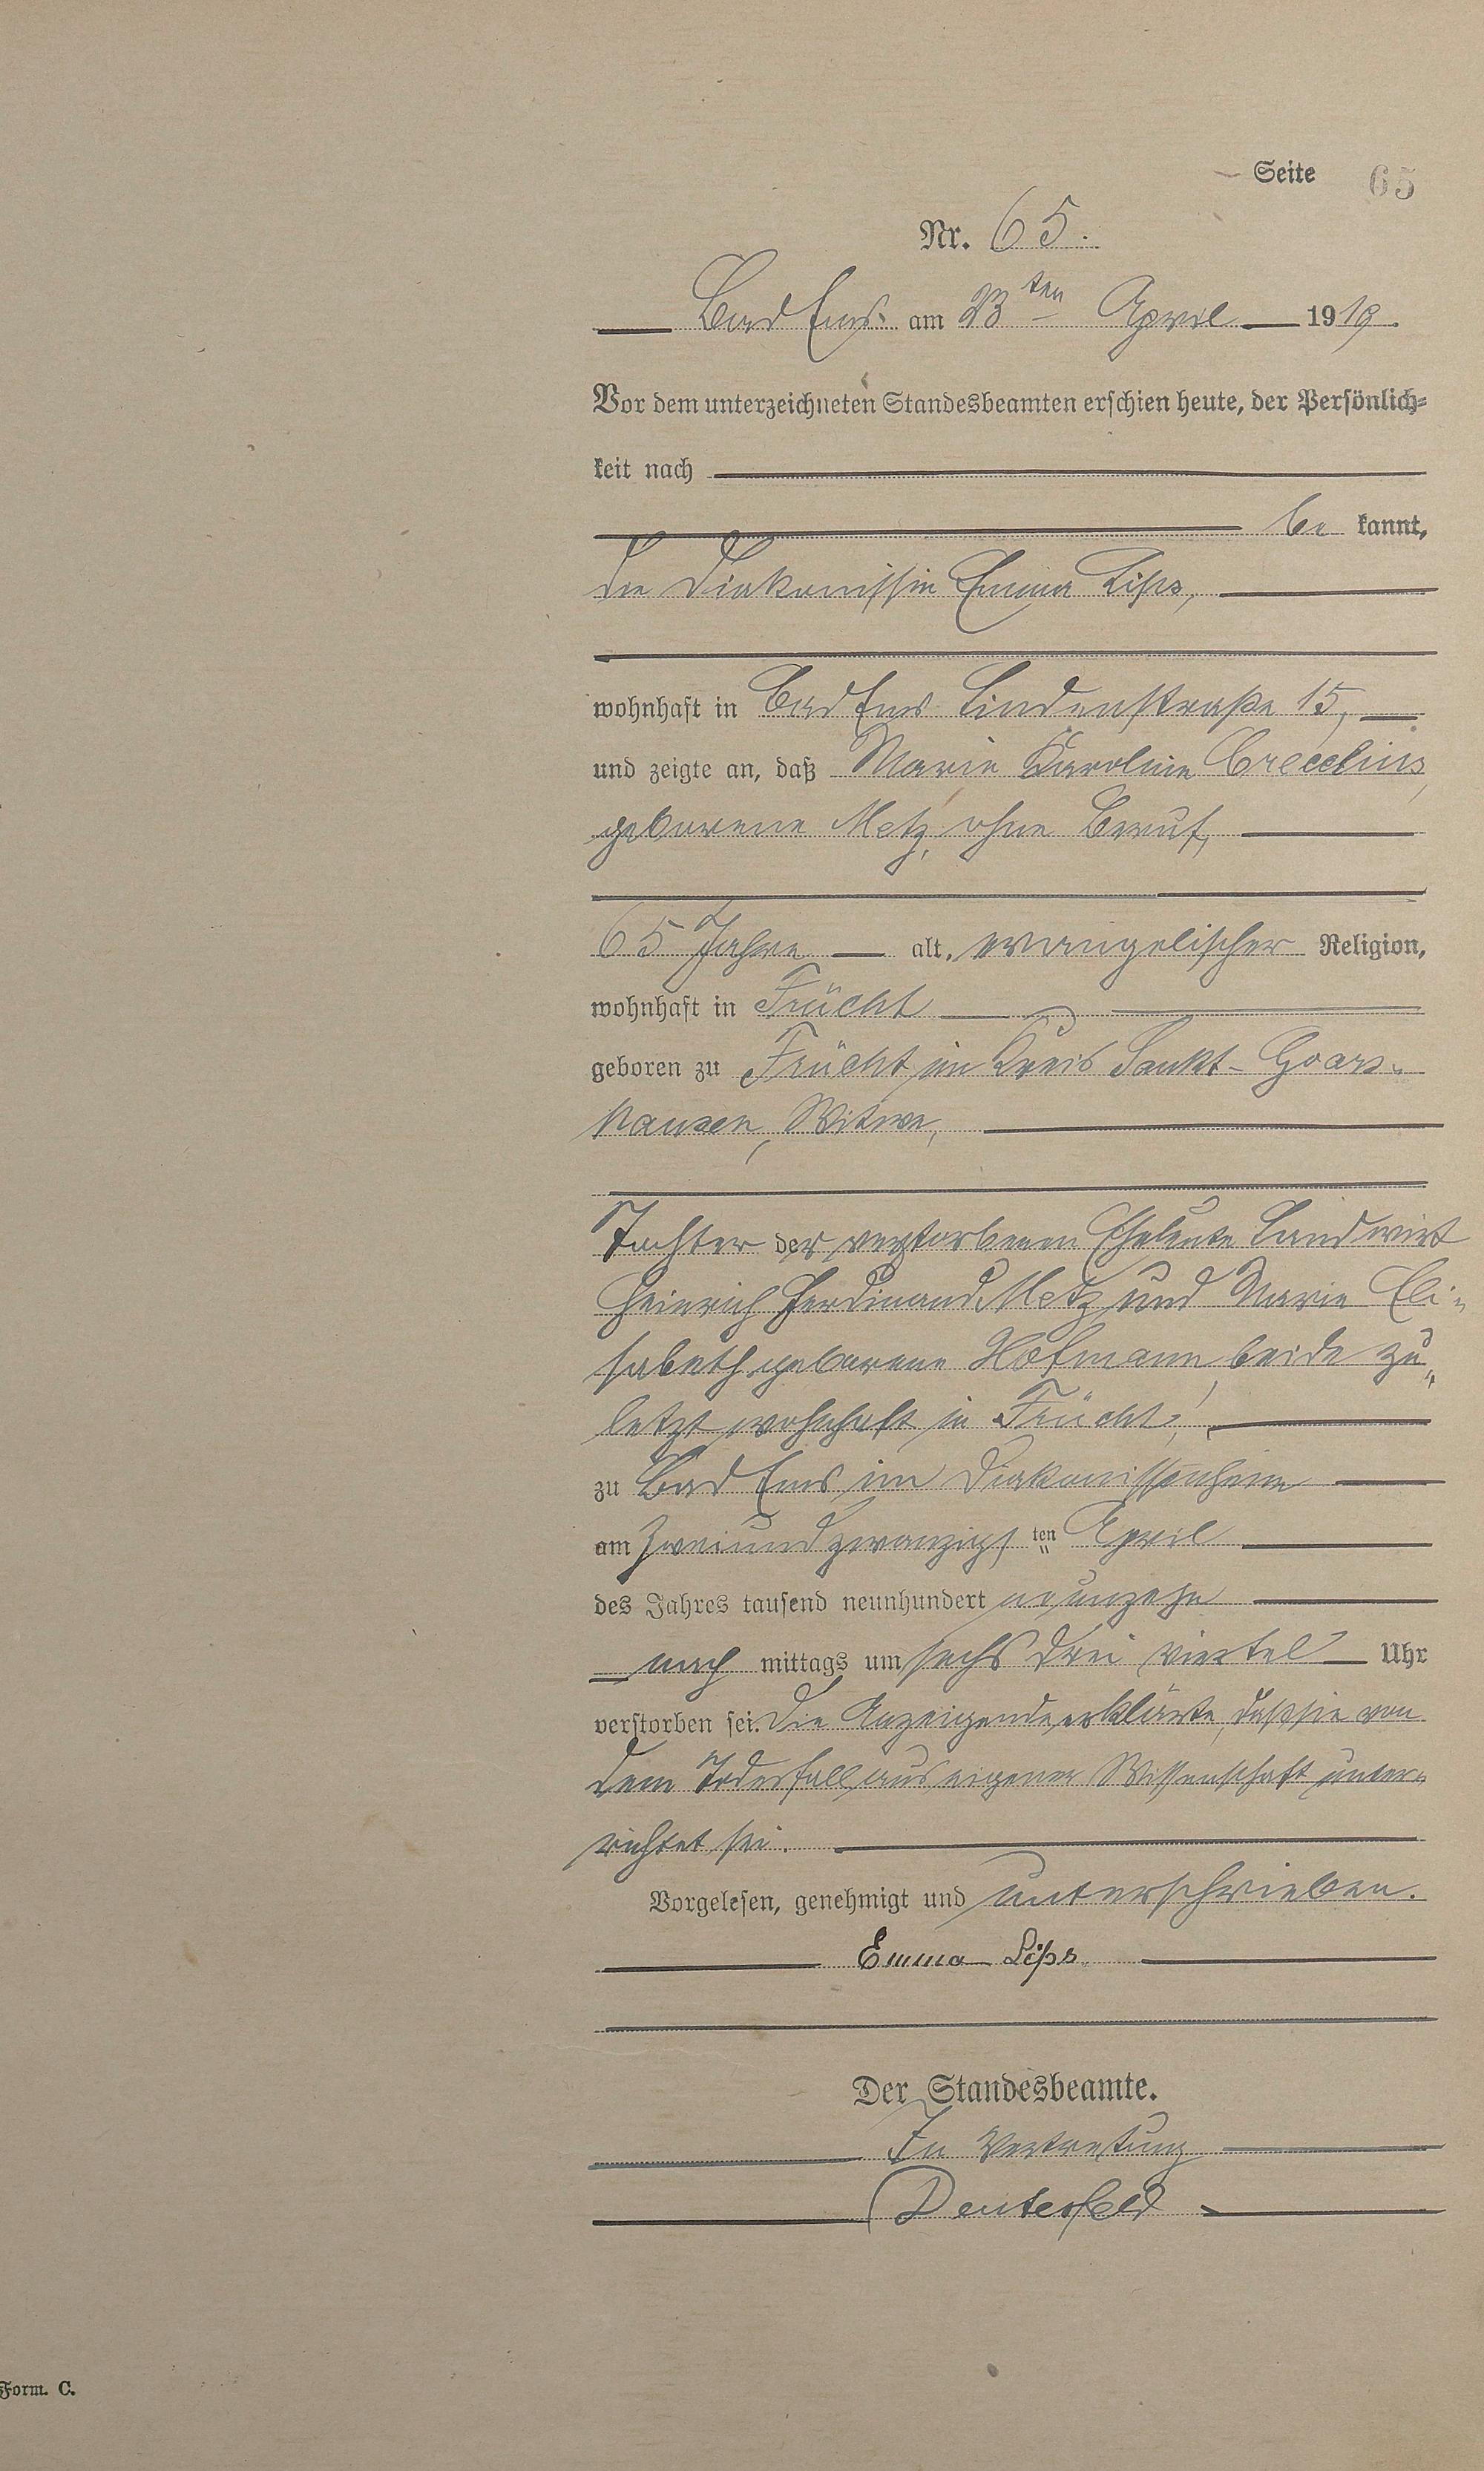 Seite 65
Nr. 65.
Bad Ems am 23ten April 1919.
Vor dem unterzeichneten Standesbeamten erschien heute, der Persönlich=
keit nach
be kannt,
die Diakonissin Emma Lips,
wohnhaft in Bad Ems Lindenstraße 15,
und zeigte an, daß Marie Karoline Crecelius,
geborene Metz, ohne Beruf,
65 Jahre alt, evangelischer Religion,
wohnhaft in Frücht
geboren zu Frücht im Kreis Sankt-Goars-
hausen, Witwe,
Tochter der verstorbenen Eheleute Landwirt
Heinrich Ferdinand Metz und Marie Eli-
sabeth geborene Hofmann, beide zu-
letzt wohnhaft in Frücht,
zu Bad Ems, im Diakonissenheim
am zweiundzwanzigsten April
des Jahres tausend neunhundert neunzehn
nach mittags um sechs drei viertel Uhr
verstorben sei. Die Anzeigende erklärte, daß sie von
dem Todesfall aus eigener Wissenschaft unter-
richtet sei.
Vorgelesen, genehmigt und unterschrieben.
Emma Lips.
Der Standesbeamte.
In Vertretung
Form. C.